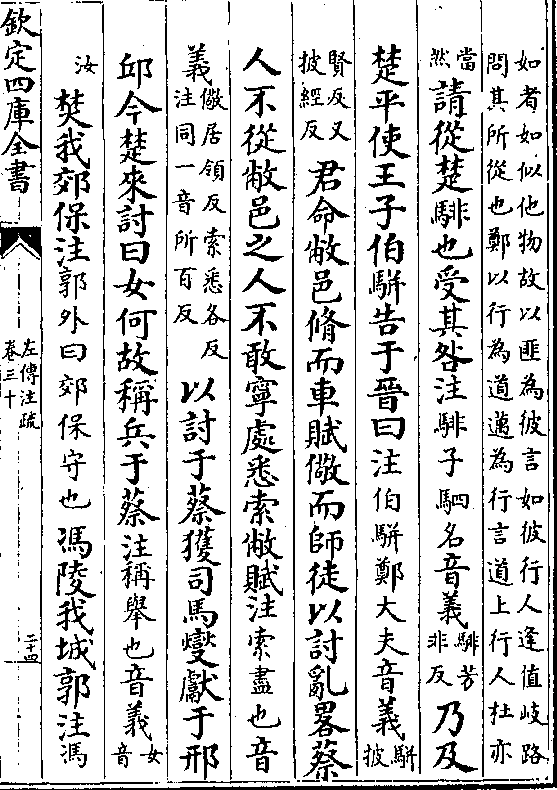 如者如似他物故以匪為彼言如彼行人逢值岐路
問其所從也鄭以行為道邁為行言道上行人杜亦
當然請從楚騑也受其咎注騑子駟名音義騑芳非反乃及
楚平使王子伯駢告于晉曰注伯駢鄭大夫音義駢披
賢反又披經反君命敝邑脩而車賦儆而師徒以討亂畧蔡
人不從敝邑之人不敢寧處悉索敝賦注索盡也音
義儆居領反索悉各反注同一音所百反以討于蔡獲司馬燮獻于邢
邱今楚來討曰女何故稱兵于蔡注稱舉也音義女音
汝焚我郊保注郭外曰郊保守也馮陵我城郭注馮
欽定四庫全書
左傳注疏
卷三十
二十四